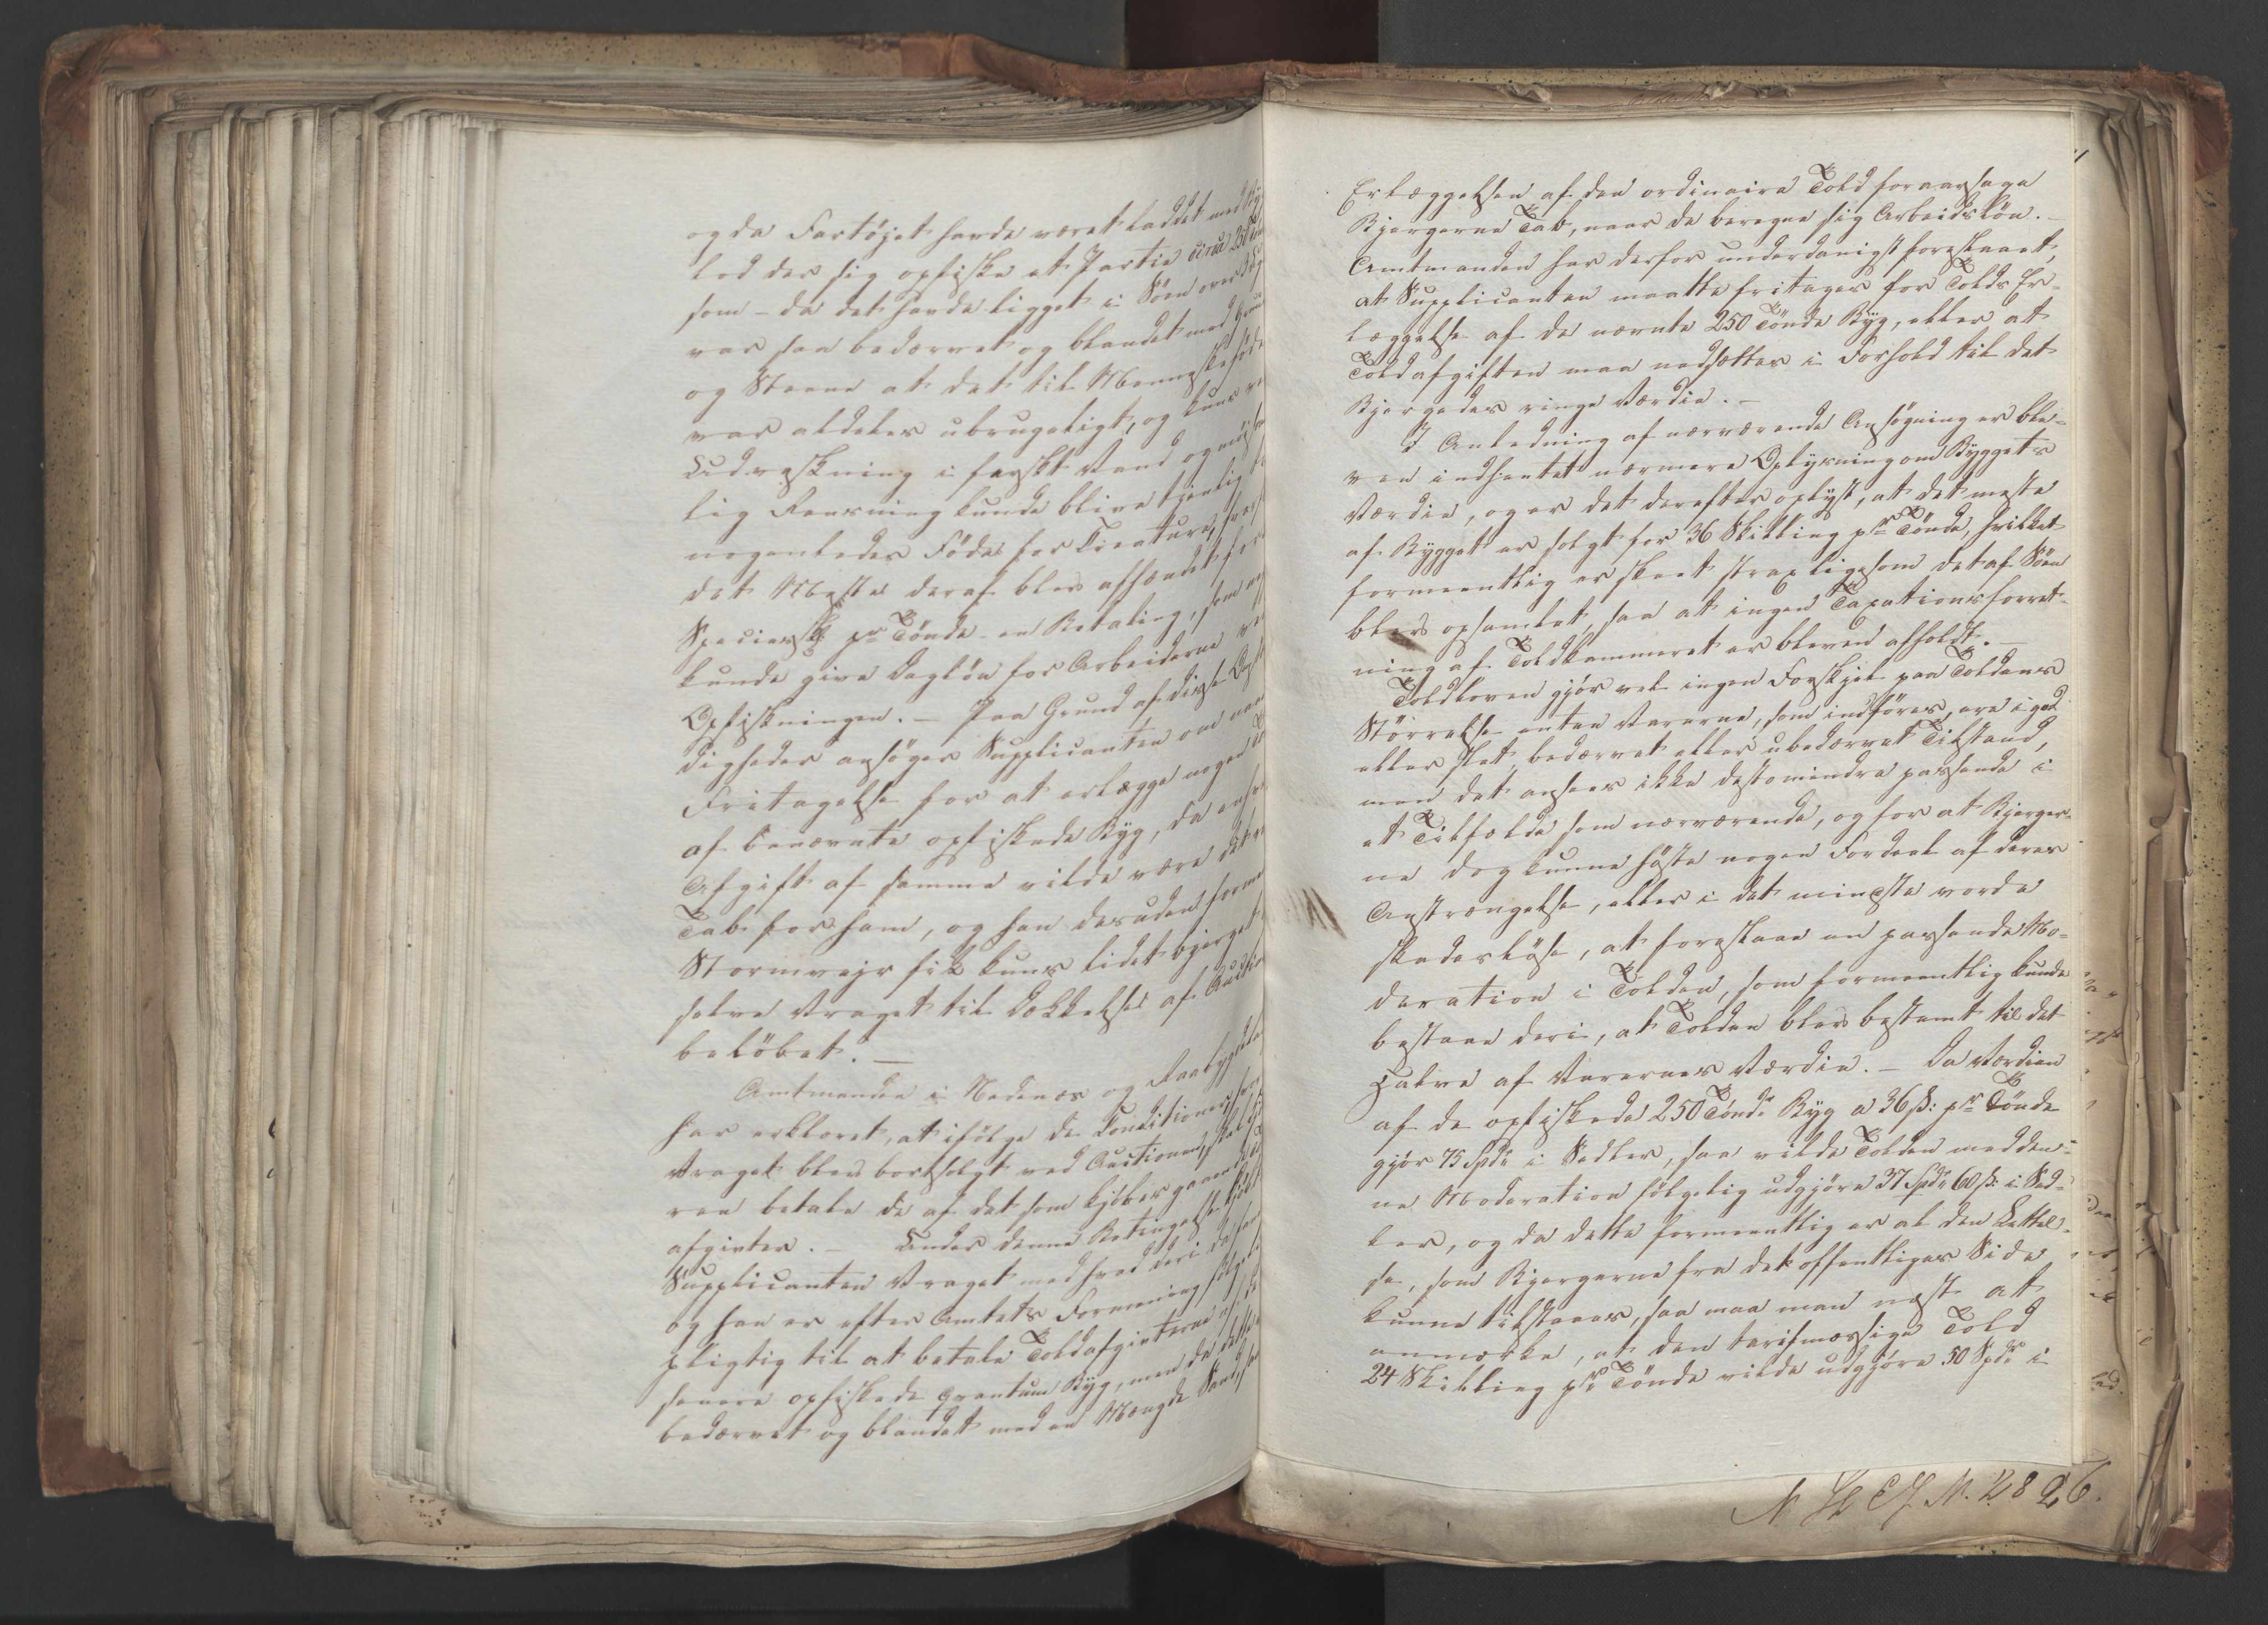 og da Fartöjet havde været laddet med Byg
lod der sig opfiske et Partie circa 250
som – da det havde ligget i Söen over
var saa bedærvet og blandet med
og Steene at det til Menneskeföde
var aldeles ubrugeligt, og kuns
Udvaskning i færskt Vand og
lig Rensning kunde blive tjenlig
nogenledes Föde for Creature,
det Meste deraf blev afhændet for
Species pr Tönde – en Betaling, som
kunde give Daglön for Arbeiderne
Opfiskningen. – Paa Grund af disse
digheder ansöger Supplicanten om
Fritagelse for at erlægge nogen
af benævnte opfiskede Byg, da
Afgift af samme vilde være
Tab for ham, og han desuden
Stormvejr fik kuns lidet bjerget
selve Vraget til Dækkelse af
belöbet. –
Amtmanden i Nedenæs og Raabygdela
har erklæret, at ifölge de Conditioner,
Vraget blev bortsolgt ved Auctionen,
ren betale de af det som kjöber gaaende
afgivter. – Under denne Betingelse
Supplicanten Vraget med hvad deri
og han er efter Amtets Formening
pligtig til at betale Toldafgivterne af
senere opfiskede qvantum Byg, men da dette
bedærvet og blandet med en Mængde Sand,
Erlæggelsen af den ordinaire Told foraarsage
Bjergerne Tab, naar de beregne sig Arbeidslön. –
Amtmanden har derfor underdanigst foreslaaet,
at Supplicanten maatte fritages for Tolds Er-
læggelse af de nævnte 250 Tönde Byg, eller at
Toldafgiften maa nedsættes i Forhold til det
Bjergedes ringe Værdie. –
I Anledning af nærværende Ansögning er ble-
ven indhentet nærmere Oplysning om Bygget's
Værdie, og er det derefter oplyst, at det meste
af Bygget er solgt for 36 Skilling pr Tönde, hvilket
formeentlig er skeet strax ligesom det af Söen
blev opsamlet, saa at ingen Taxationsforret-
ning af Toldkammeret er bleven afholdt. –
Toldloven gjör vel ingen Forskjel paa Toldens
Störrelse enten Varerne, som indföres, ere i god
eller slet, bedærvet eller ubedærvet Tilstand,
men det ansees ikke destomindre passende i
et Tilfælde som nærværende, og for at Bjerger-
ne dog kunne höste nogen Fordeel af deres
Anstrængelse, eller i det mindste vorde
skadeslöse, at foreslaae en passende Mo-
deration i Tolden, som formeentlig kunde
bestaae deri, at Tolden blev bestemt til det
Halve af Varernes Værdie. – Da Værdien
af de opfiskede 250 Tönde Byg a 36 ß: pr Tönde
gjör 75 Spdr i Sedler, saa vilde Tolden med den-
ne Moderation fölgelig udgjöre 37 Spdr 60 ß: i Sed-
ler, og da dette formeentlig er al den Lettel-
se, som Bjergerne fra det offentliges Side
kunne tilstaaes, saa maa man næst at
anmærke, at den tarifmæssige Told
24 Skilling pr Tönde vilde udgjöre 50 Spdr i